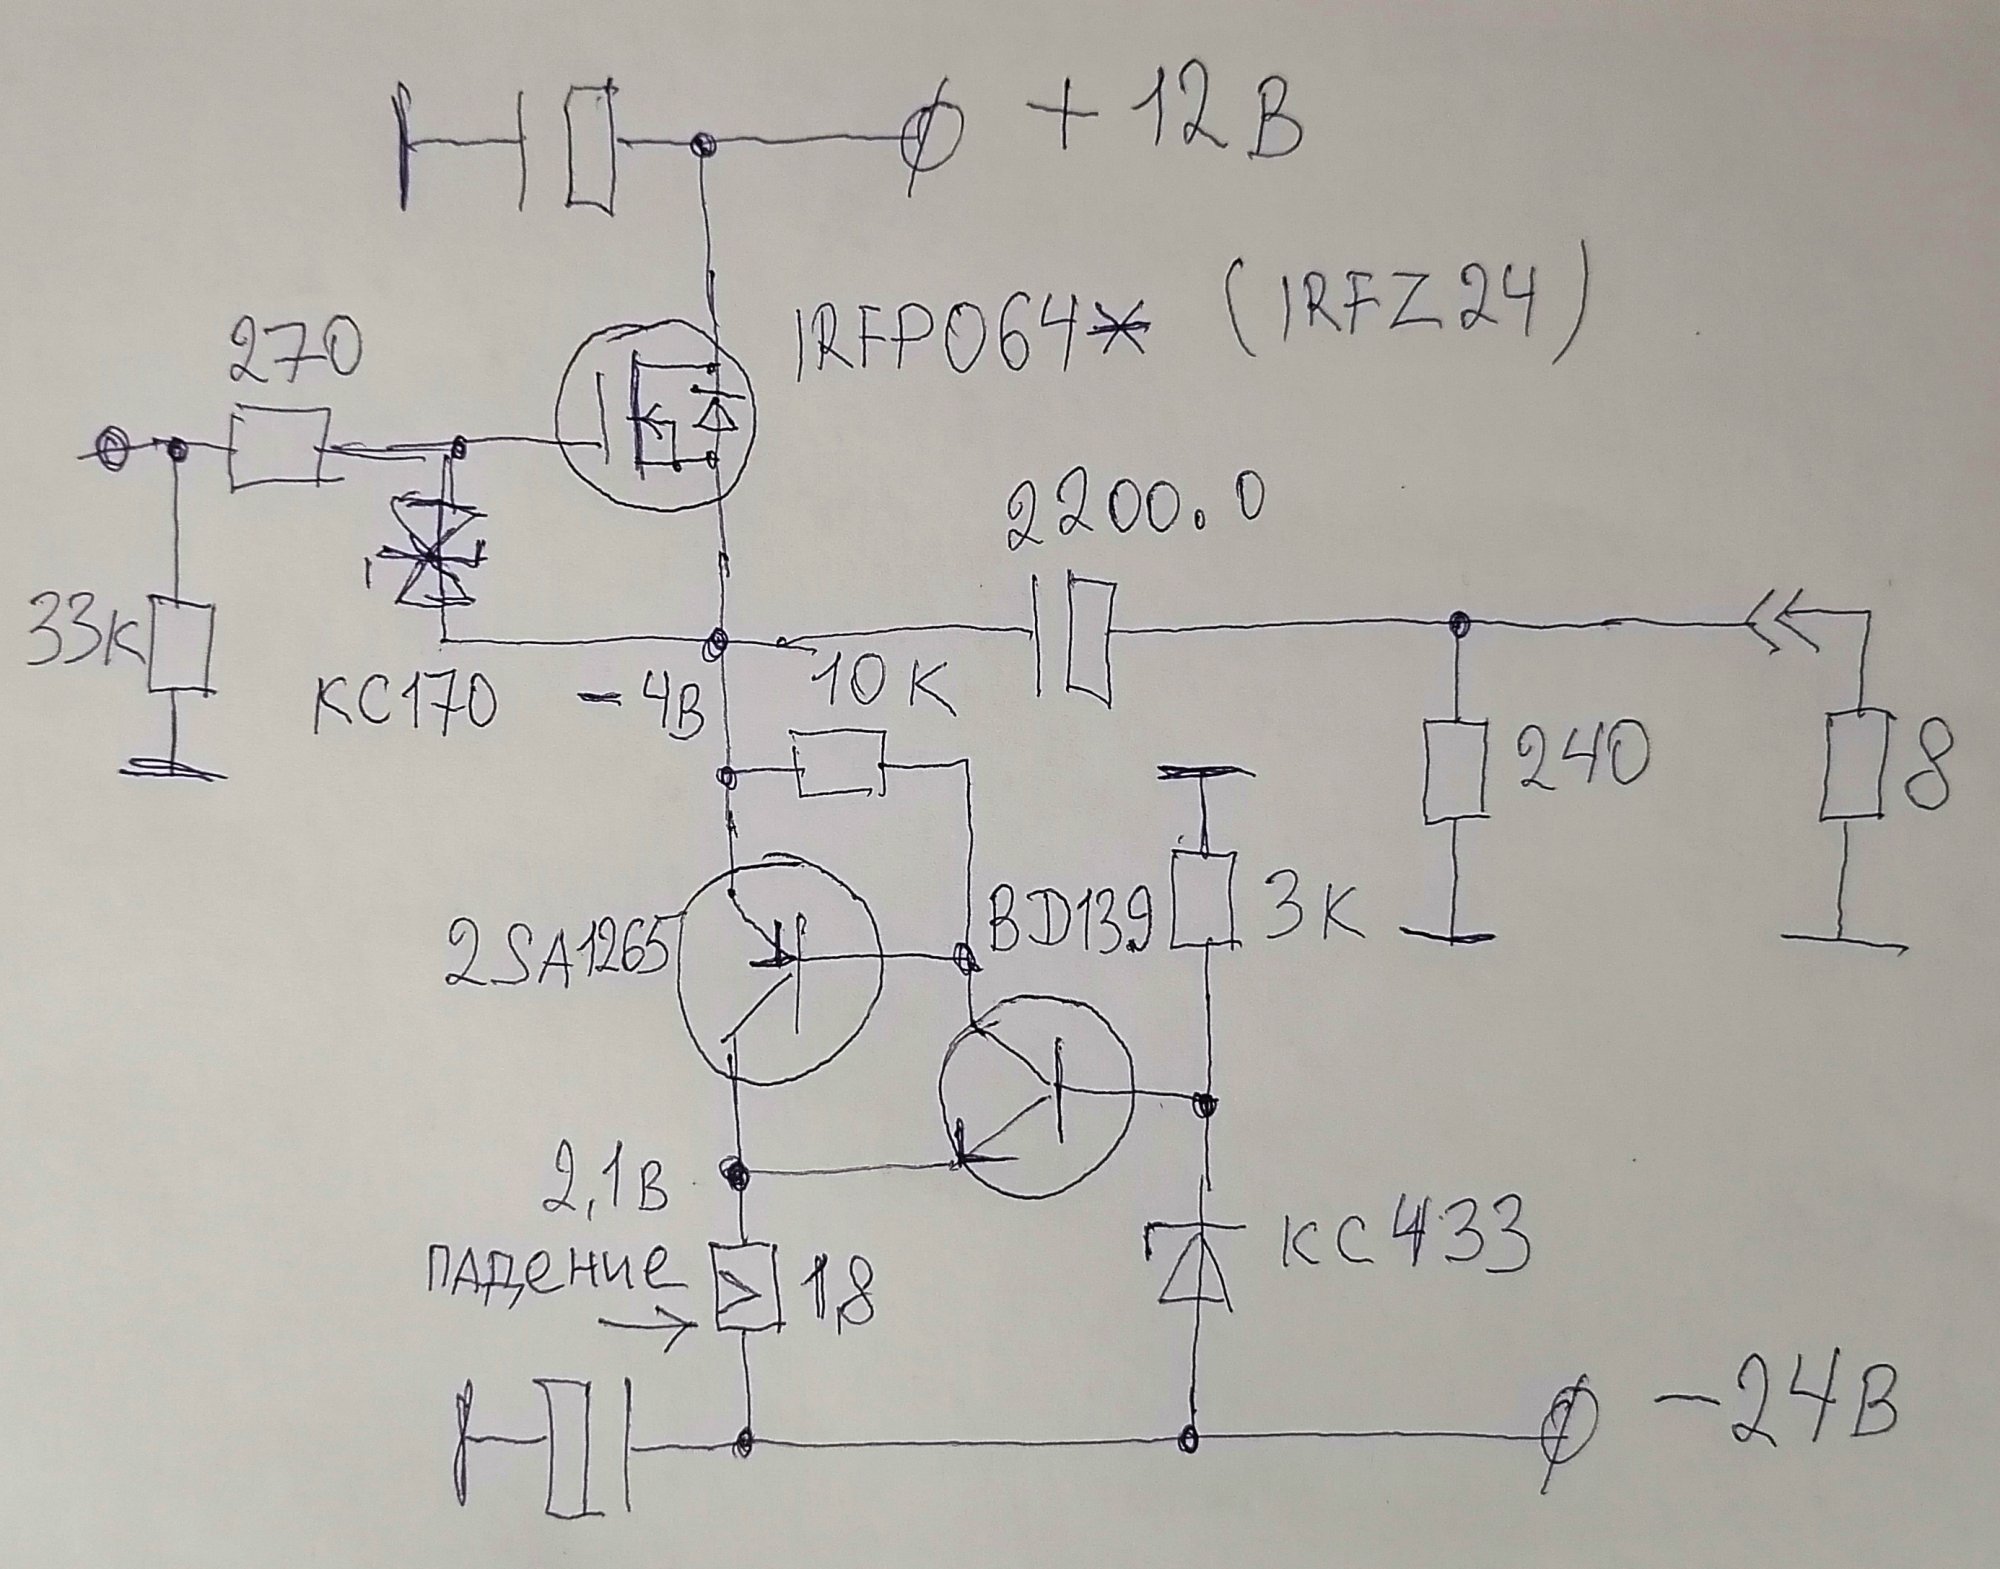 + 12 В
IRFP064* (IRFZ24)
270
2200.0
33к
КС170
-4в
10к
240
8
2SA1265
BD139
3к
2,1в
падение
1,8
КС433
-24В